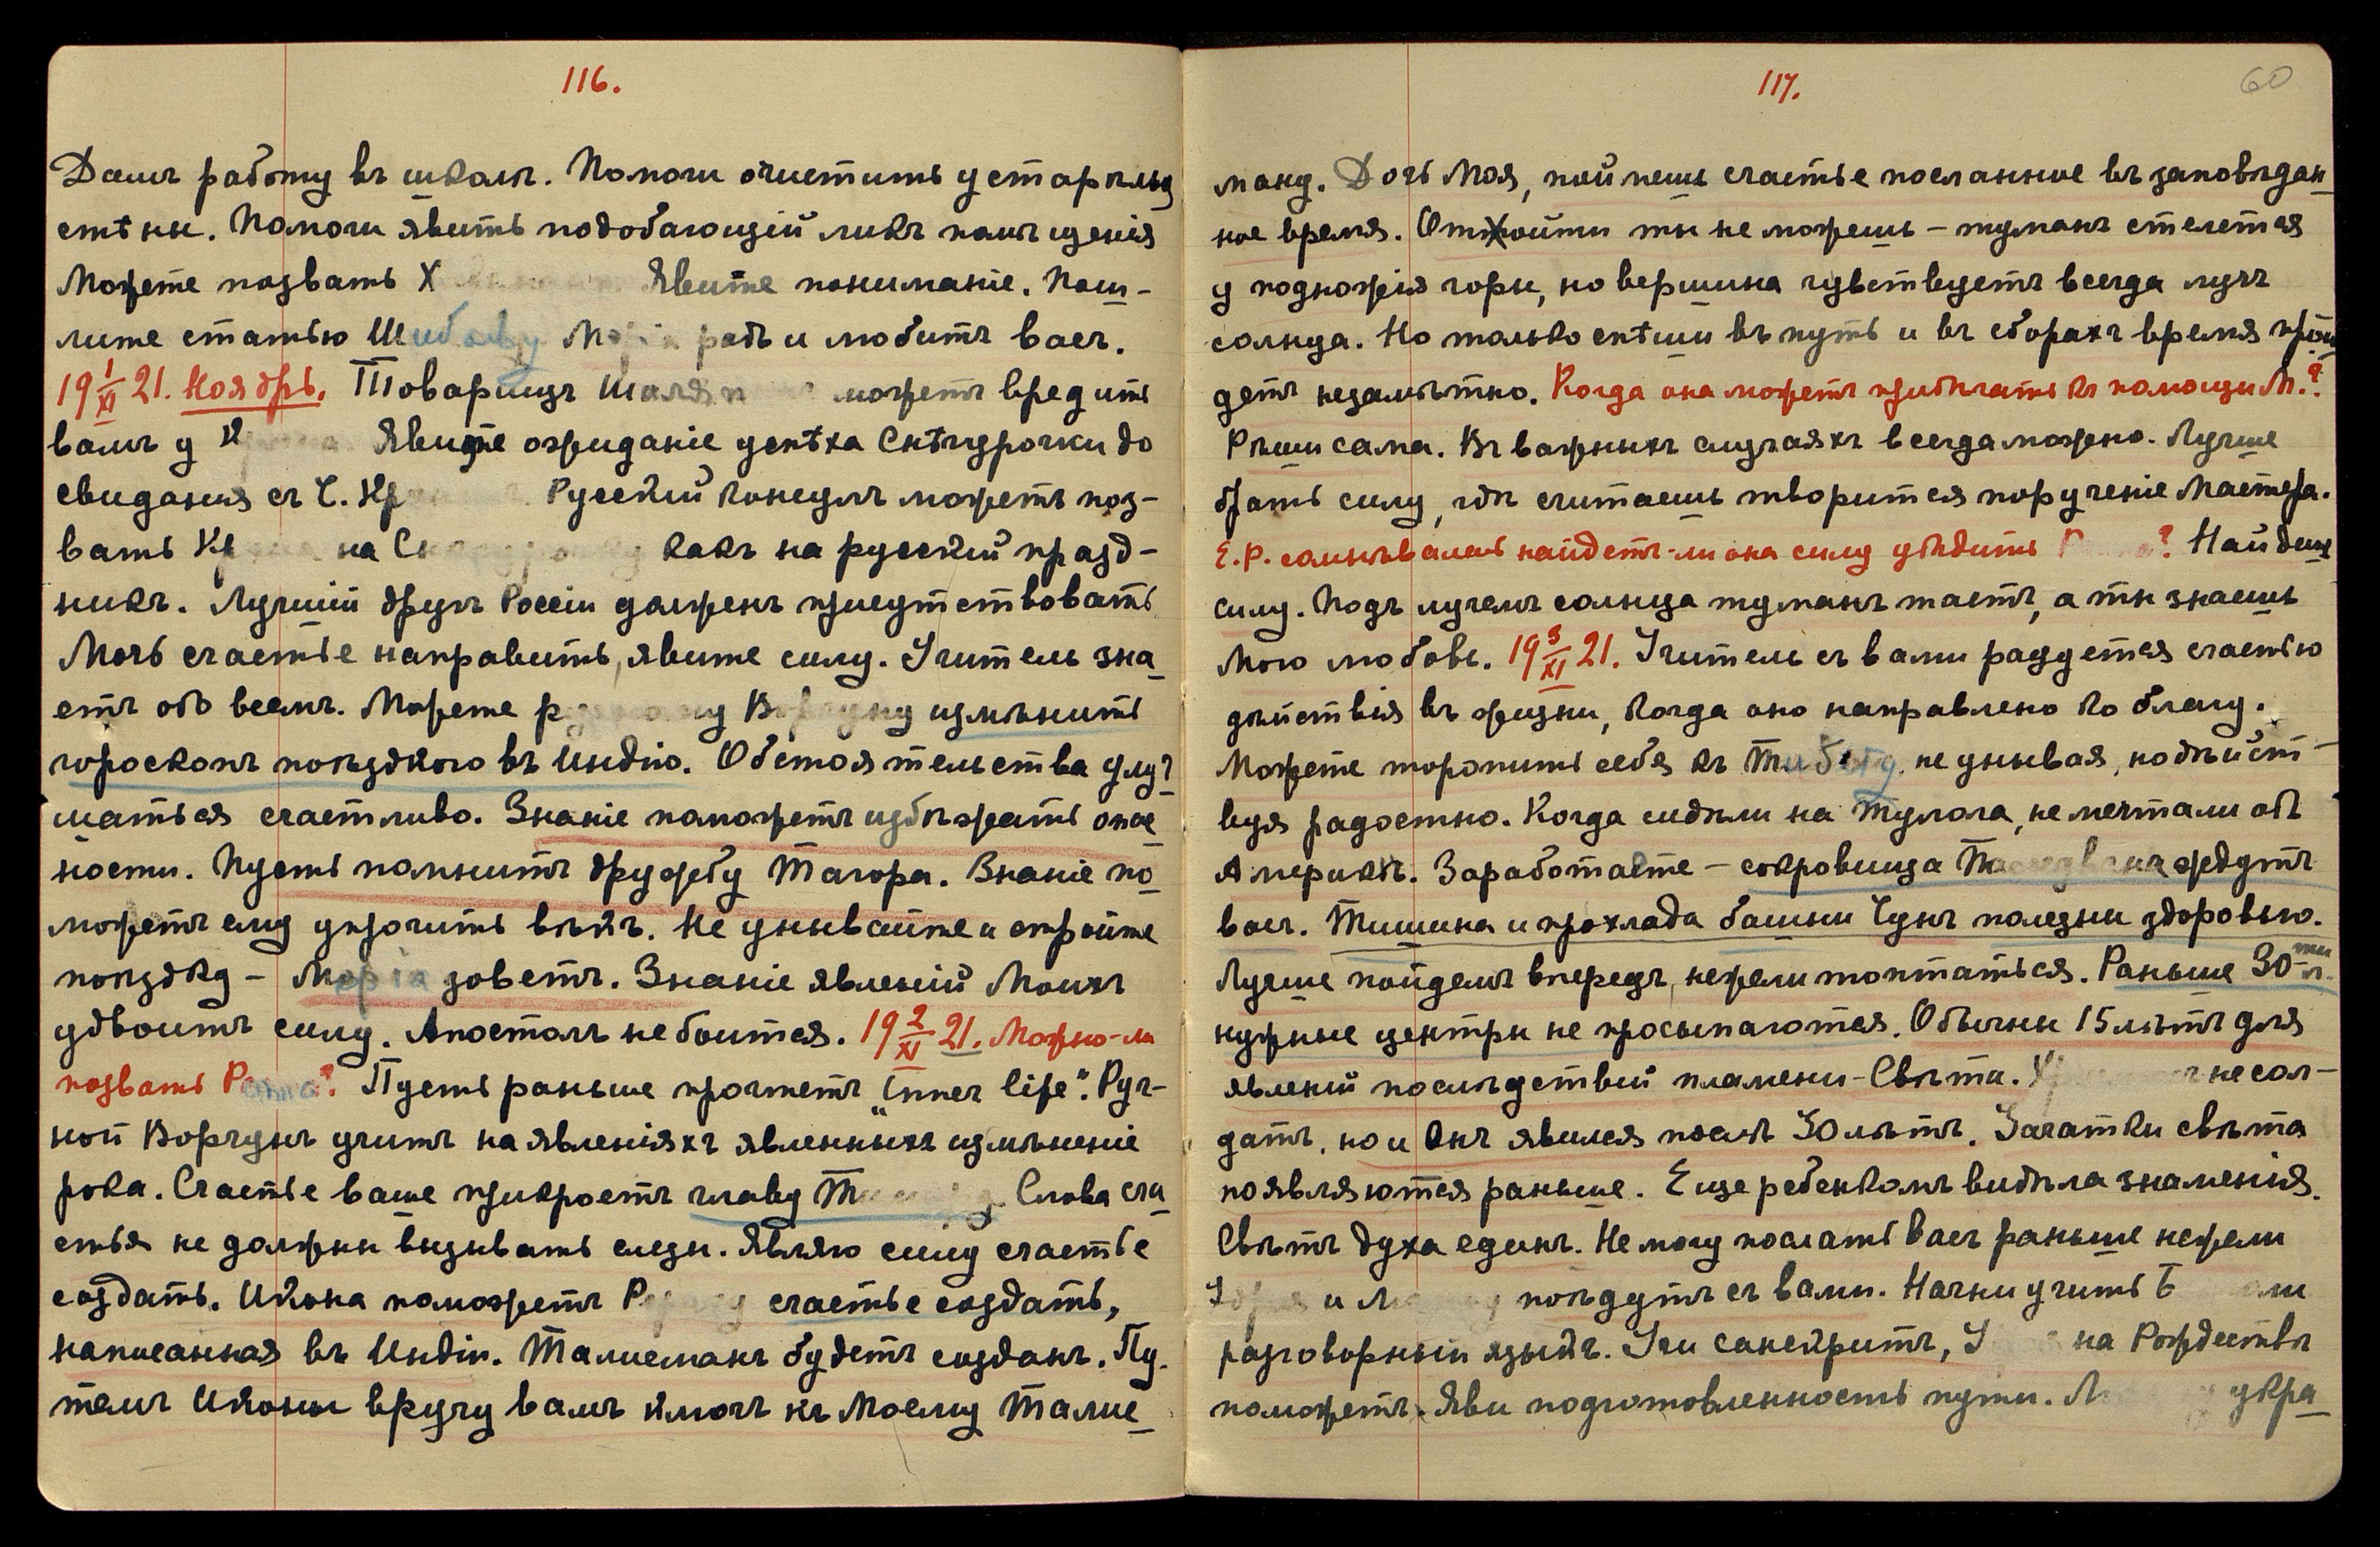 116.
Дамъ работу въ школѣ. Помоги очистить устарѣлыя
стѣны. Помоги явить подобающій ликъ помѣщенія
Можете позвать Х Явите пониманіе. Пош-
лите статью Шибаеву Морія радъ и любитъ васъ.
19 1/XI 21. Ноябрь. Товарищъ Шаляп можетъ вредить
вамъ у Явите ожиданіе успѣха Снѣгурочки до
свиданія съ Ч. Кр Русскій консулъ можетъ поз-
вать Кр на Снѣгурочку какъ на русскій празд-
никъ. Лучшій другъ Россіи долженъ присутствовать
Мочь счастье направить, явите силу. Учитель зна-
етъ обо всемъ. Можете измѣнить
гороскопъ поѣздкою въ Индію. Обстоятельства улуч-
шаться счастливо. Знаніе поможетъ избѣжать опас-
ности. Пусть помнитъ дружбу Тагора. Знаніе по-
можетъ ему упрочить вѣкъ. Не унывайте и стройте
поѣздку – Морія зоветъ. Знаніе явленій Моихъ
удвоитъ силу. Апостолъ не боится. 19 2/XI 21. Можно-ли
позвать Р ? Пусть раньше прочтетъ „Inner life". Руч-
ной Ворчунъ учитъ на явленіяхъ явленныхъ измѣненіе
рока. Счастье ваше прикроетъ главу Т Слова сча-
стья не должны вызывать слезы. Являю силу счастье
создать. Икона поможетъ Р счастье создать,
написанная въ Индіи. Талисманъ будетъ созданъ. Пу-
темъ Иконы вручу вамъ ключъ къ Моему Талис-
117.
60
ману. Дочь Моя, поймешь счастье посланное въ заповѣдан-
ное время. Отойти ты не можешь – туманъ стелется
у подножія горы, но вершина чувствуетъ всегда лучъ
солнца. Но только спѣши въ путь и въ сборахъ время прой-
детъ незамѣтно. Когда она можетъ прибѣгать къ помощи М.?
Рѣши сама. Въ важныхъ случаяхъ всегда можно. Лучше
брать силу, гдѣ считаешь творится порученіе Мастера.
Е.Р. сомнѣвалась найдетъ-ли она силу убѣдить Р ? Найдешь
силу. Подъ лучемъ солнца туманъ таетъ, а ты знаешь
Мою любовь. 19 3/XI 21. Учитель съ вами радуется счастью
дѣйствія въ жизни, когда оно направлено ко благу.
Можете торопить себя къ Тибету, не унывая, но дѣйст-
вуя радостно. Когда сидѣли на Тулола, не мечтали объ
Америкѣ. Заработаете – сокровища ждутъ
васъ. Тишина и прохлада башни Чунъ полезны здоровью.
Лучше пойдемъ впередъ, нежели топтаться. Раньше 30-ти л.
нужные центры не просыпаются. Обычны 15 лѣтъ для
явленій послѣдствій пламени-Свѣта. не сол-
датъ, но и Онъ явился послѣ 30 лѣтъ. Зачатки свѣта
появляются раньше. Еще ребенкомъ видѣла знаменія.
Свѣтъ духа единъ. Не могу послать васъ раньше нежели
и поѣдутъ съ вами. Начни учить
разговорный языкъ. Учи санскритъ, на Рождествѣ
поможетъ. Яви подготовленность пути. укра-